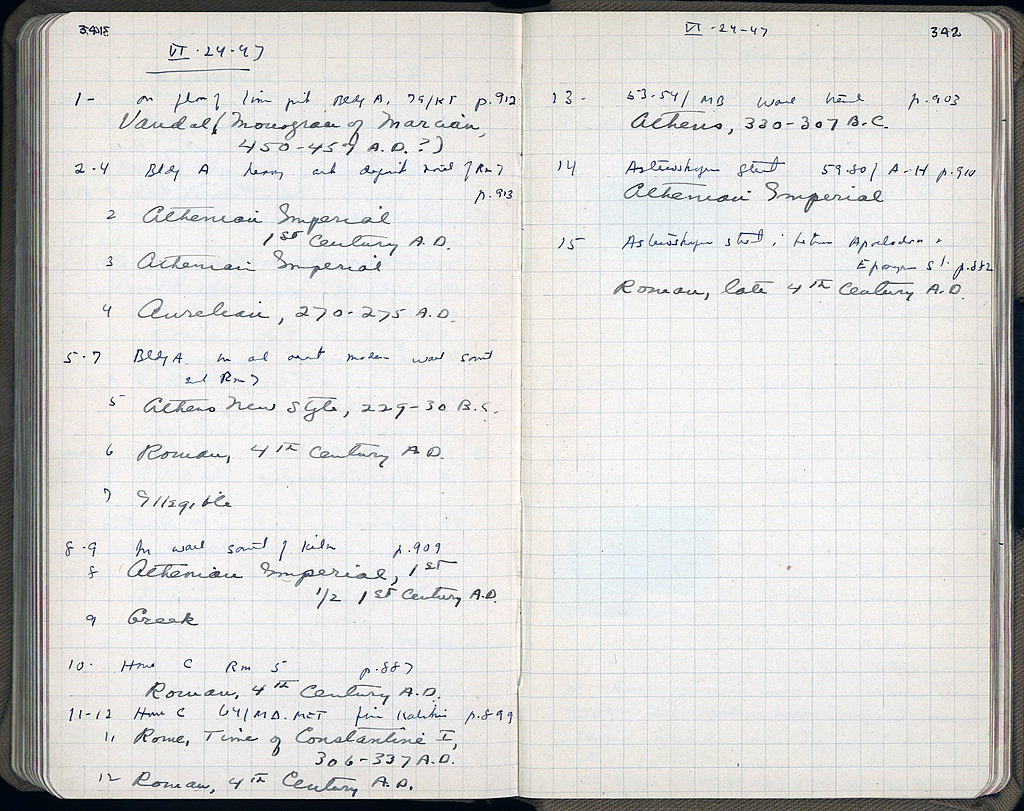 VI-24-47
1- on floor of lime pit Bldg A, 79/ΚΤ p.912
Vandal (Monogram of Marcian,
450-457 A.D.?)
2-4 Bldg A deposit of Rm 7
p.913
2 Athenian Imperial
1ST Century A.D.
3 Athenian Imperial
4 Aurelian, 270-275 A.D.
5-7 Bldg A modern wall south
Rm 7
5 Athens New Style, 229-30 B.C.
6 Roman, 4TH Century A.D.
7 Illegible
8-9 In wall south of kiln p.909
8 Athenian Imperial, 1ST
1/2 1ST Century A.D.
9 Greek
10- House C Rm 5 p.887
Roman, 4TH Century A.D.
11-12 House C 64/ p.899
11 Rome, Time of Constantine I,
306-337 A.D.
12 Roman, 4TH Century A.D.
VI-24-47 342
13- 53-54/ΜΒ wall p.903
Athens, 330-307 B.C.
14 Asteroskopeiou Street 59-80/Α-Η p.910
Athenian Imperial
15 Asteroskopeiou street; between Apollodorou +
Eponymon St. p.882
Roman, late 4TH Century A.D.